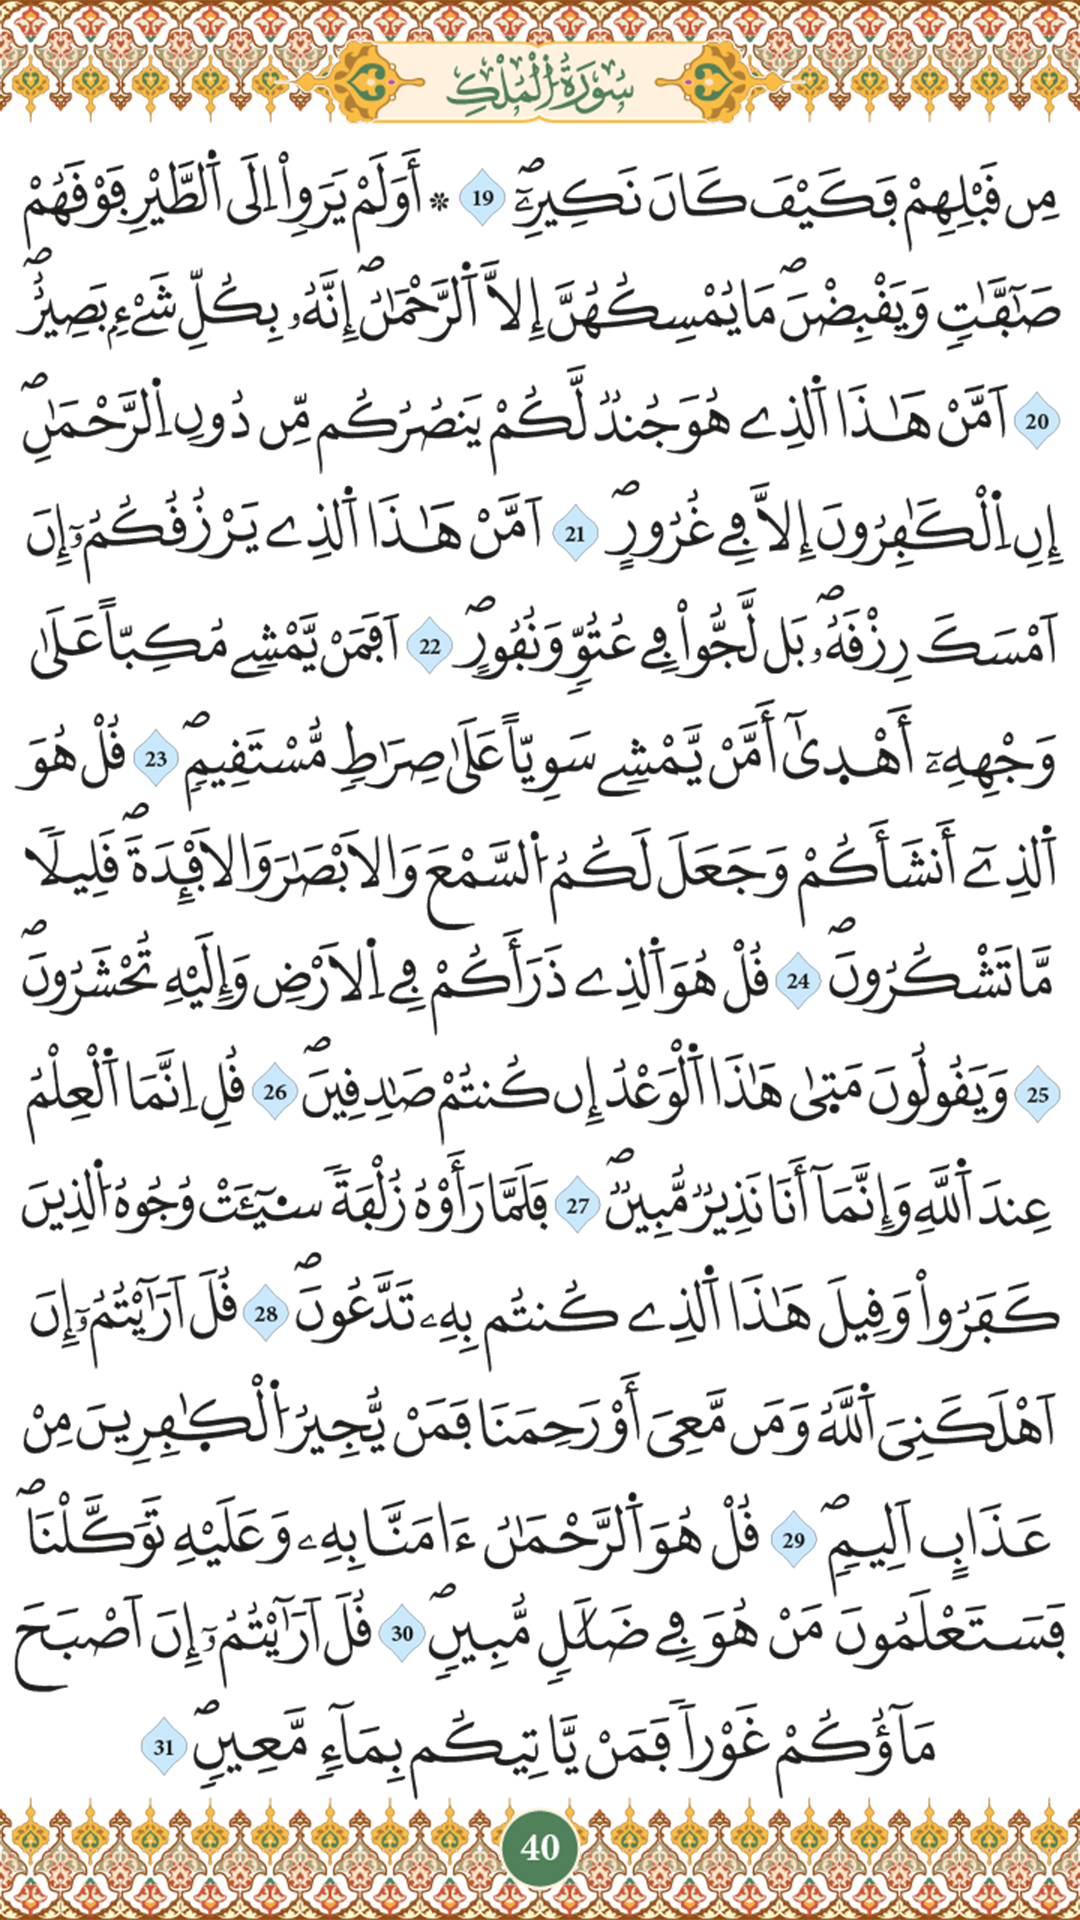 سُورَةُ الْمُلْكِ
مِن قَبْلِهِمْ فَكَيْفَ كَانَ نَكِيرِۦٓۖ 19 ۞ أَوَلَمْ يَرَوِاْ اِلَى اَلطَّيْرِ فَوْقَهُمْ
صَٰٓفَّٰتٍ وَيَقْبِضْنَۖ مَا يُمْسِكُهُنَّ إِلاَّ اَلرَّحْمَٰنُۖ إِنَّهُۥ بِكُلِّ شَےْءِۢ بَصِيرٌۖ
20 اَمَّنْ هَٰذَا اَلذِے هُوَ جُندٞ لَّكُمْ يَنصُرُكُم مِّن دُونِ اِلرَّحْمَٰنِۖ
إِنِ اِلْكَٰفِرُونَ إِلاَّ فِے غُرُورٍۖ 21 اَمَّنْ هَٰذَا اَلذِے يَرْزُقُكُمُۥٓ إِنَ
اَمْسَكَ رِزْقَهُۥۖ بَل لَّجُّواْ فِے عُتُوّٖ وَنُفُورٍۖ 22 اَفَمَنْ يَّمْشِے مُكِبّاً عَلَىٰ
وَجْهِهِۦٓ أَهْد۪ىٰٓ أَمَّنْ يَّمْشِے سَوِيّاً عَلَىٰ صِرَٰطٖ مُّسْتَقِيمٖۖ 23 قُلْ هُوَ
اَلذِےٓ أَنشَأَكُمْ وَجَعَلَ لَكُمُ اُلسَّمْعَ وَالَابْصَٰرَ وَالَافْـِٕدَةَۖ قَلِيلاٗ
مَّا تَشْكُرُونَۖ 24 قُلْ هُوَ اَلذِے ذَرَأَكُمْ فِے اِلَارْضِ وَإِلَيْهِ تُحْشَرُونَۖ
25 وَيَقُولُونَ مَت۪ىٰ هَٰذَا اَلْوَعْدُ إِن كُنتُمْ صَٰدِقِينَۖ 26 قُلِ اِنَّمَا اَلْعِلْمُ
عِندَ اَللَّهِ وَإِنَّمَآ أَنَا نَذِيرٞ مُّبِينٞۖ 27 فَلَمَّا رَأَوْهُ زُلْفَةٗ سِيٓـَٔتْ وُجُوهُ اُلذِينَ
كَفَرُواْ وَقِيلَ هَٰذَا اَلذِے كُنتُم بِهِۦ تَدَّعُونَۖ 28 قُلَ اَرَٰٓيْتُمُۥٓ إِنَ
اَهْلَكَنِىَ اَللَّهُ وَمَن مَّعِىَ أَوْ رَحِمَنَا فَمَنْ يُّجِيرُ اُلْكٰ۪فِرِينَ مِنْ
عَذَابٍ اَلِيمٖۖ 29 قُلْ هُوَ اَلرَّحْمَٰنُ ءَامَنَّا بِهِۦ وَعَلَيْهِ تَوَكَّلْنَاۖ
فَسَتَعْلَمُونَ مَنْ هُوَ فِے ضَلَٰلٖ مُّبِينٖۖ 30 قُلَ اَرَٰٓيْتُمُۥٓ إِنَ اَصْبَحَ
مَآؤُكُمْ غَوْراٗ فَمَنْ يَّاتِيكُم بِمَآءٖ مَّعِينٖۖ 31
40